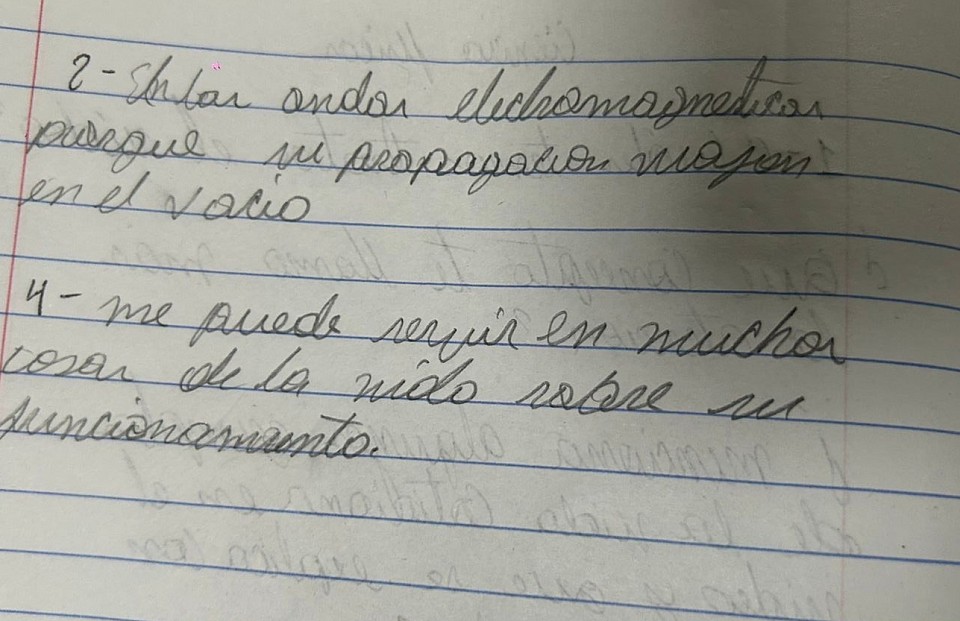 2- En las ondas electromagneticas
porque su propagacion viajan
en el vacio
4- me puede servir en muchas
cosas de la vida sobre su
funcionamiento.